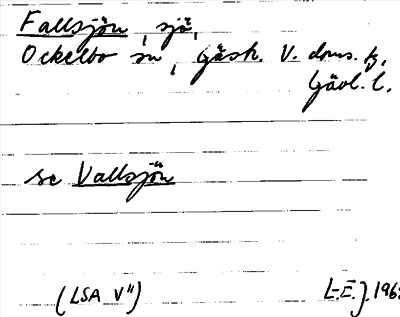 Fallsjön, sjö,
Ockelbo sn, Gäsk. V. doms. tg,
Gävl. l.
se Vallsjön
(LSA V") L-E.J. 196